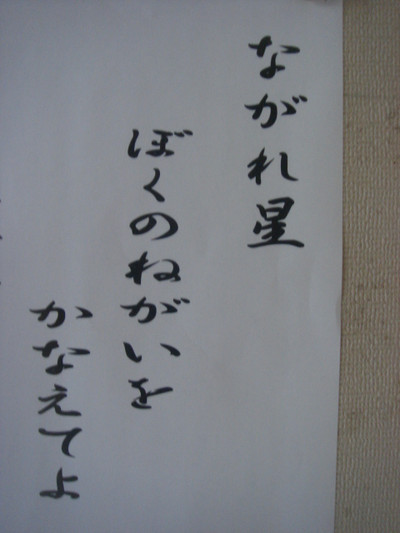 ながれ星
ぼくのねがいを
かなえてよ